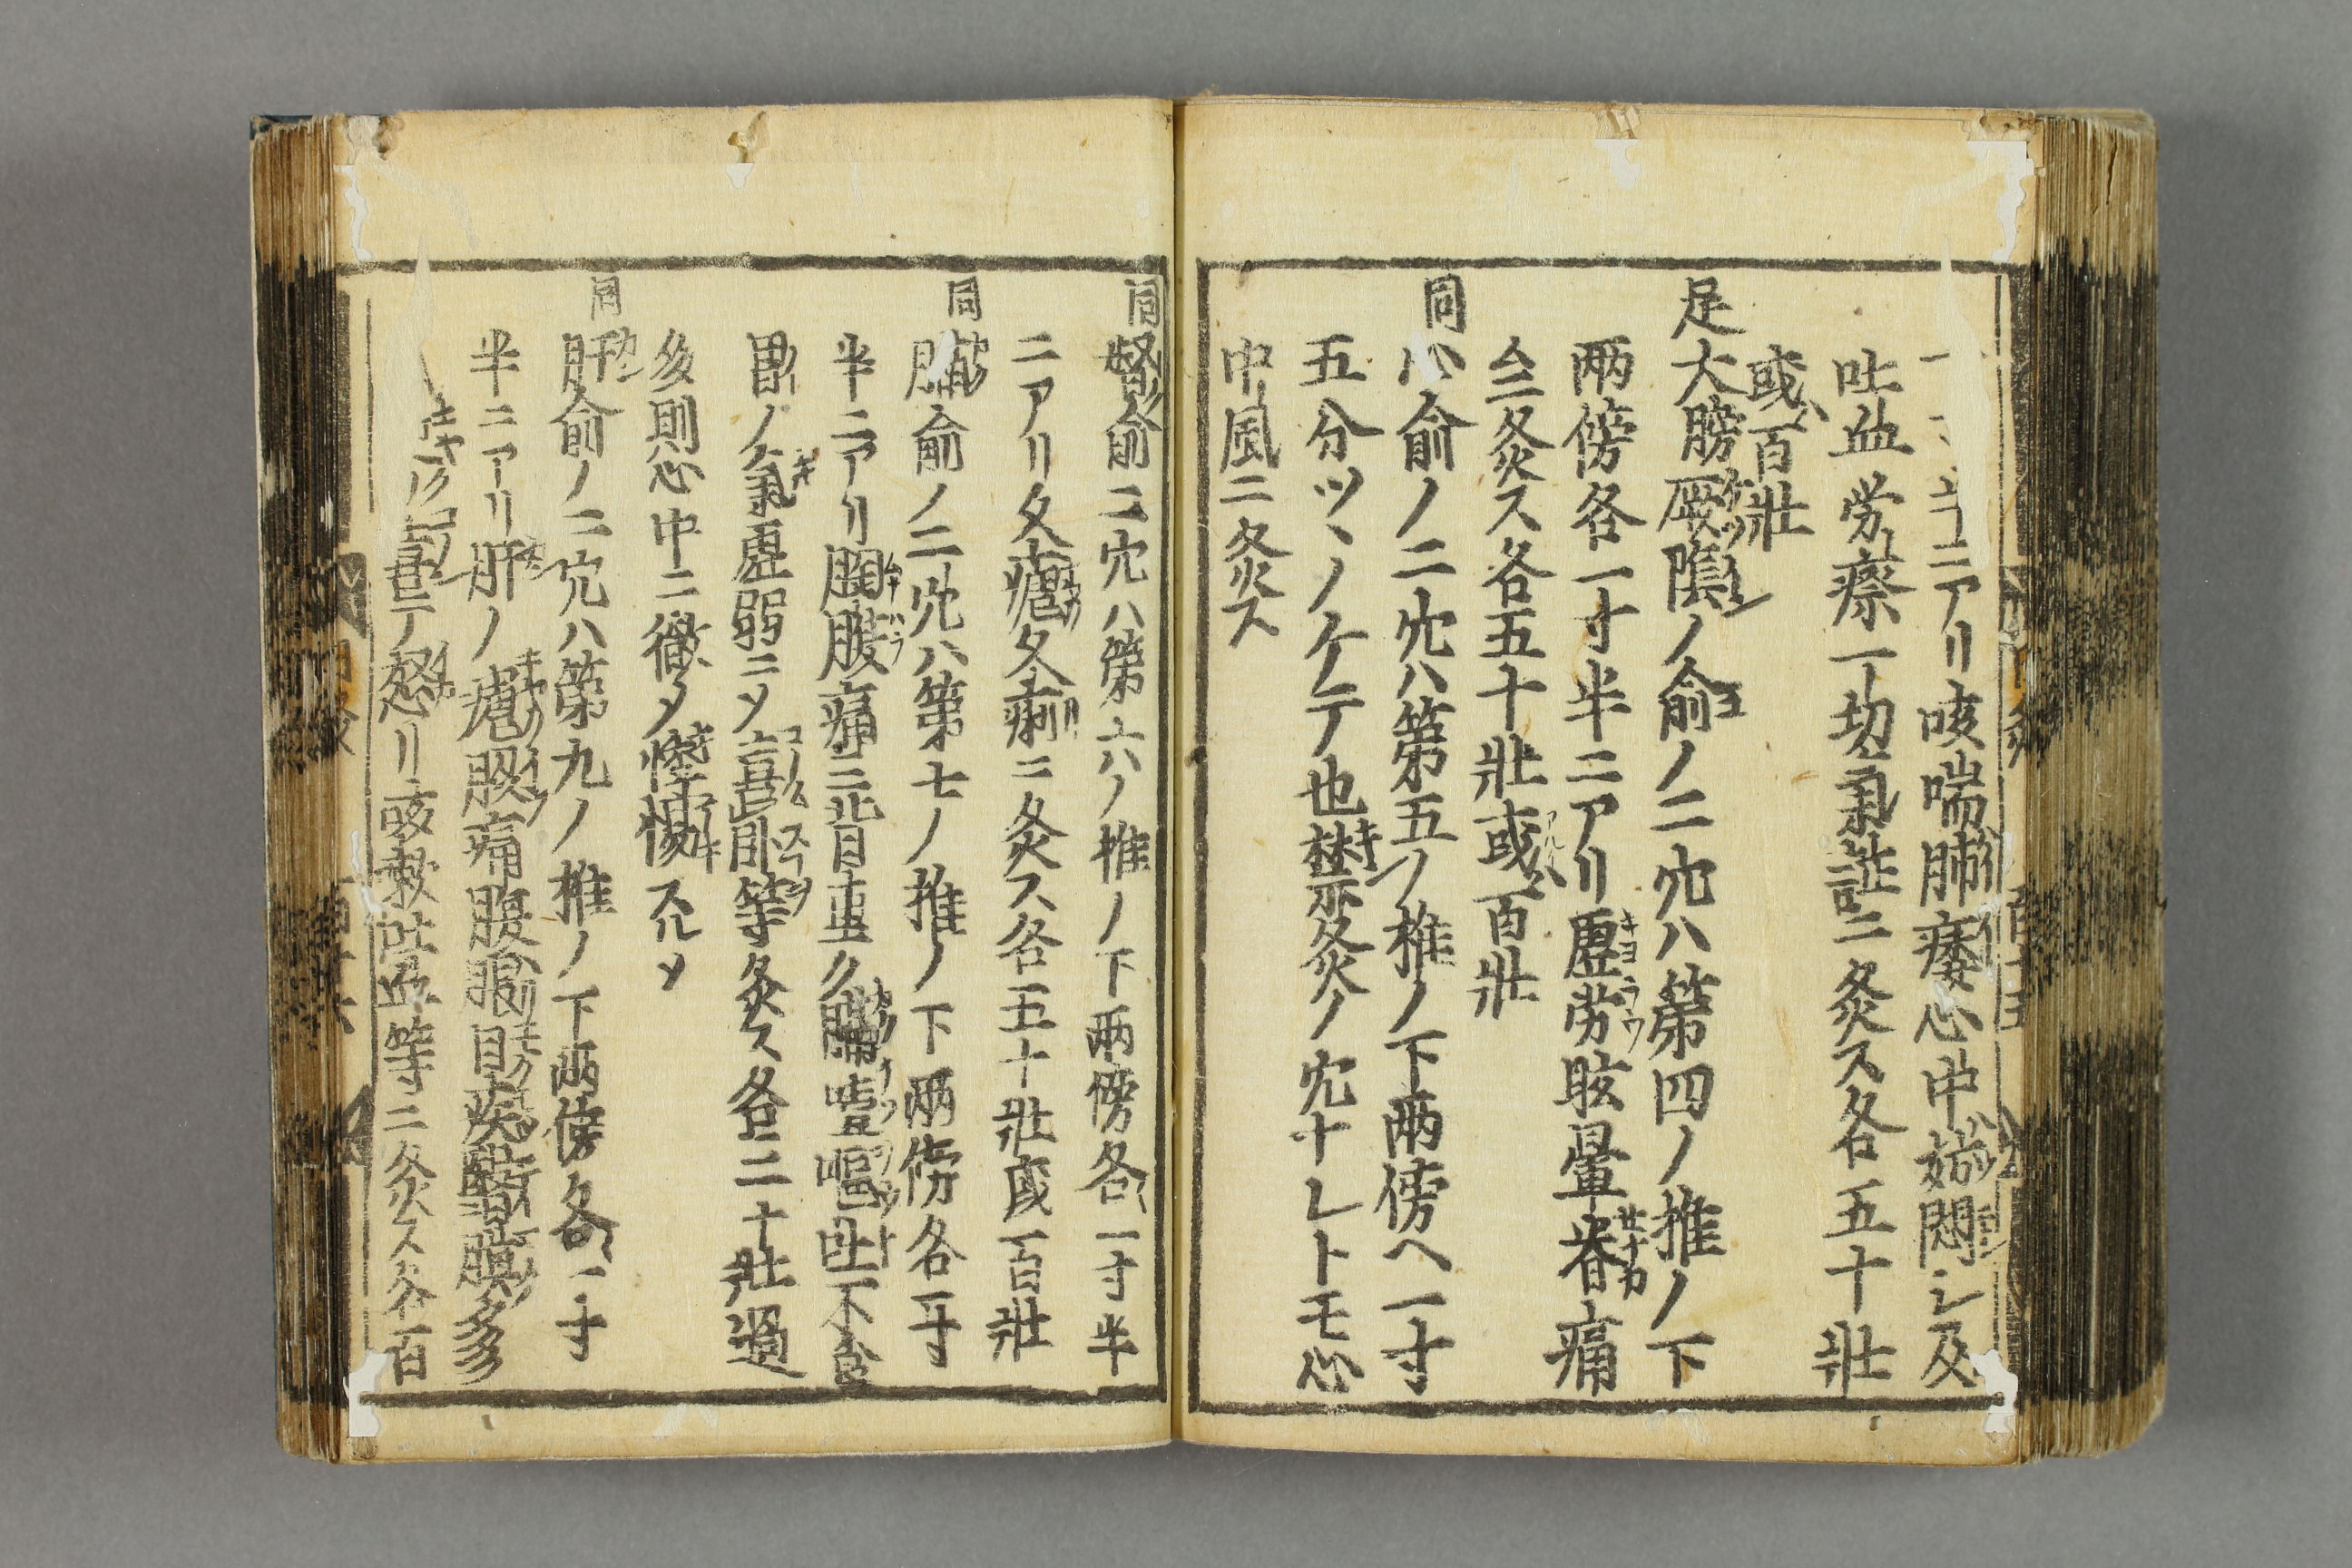 ニアリ咳喘肺痿心中煩悶シ及
吐血労瘵一切氣證ニ灸ス各五十壯
或ハ百壯
足大膀厥陰ノ俞ノ二穴ハ第四ノ推ノ下
両傍各一寸半ニアリ虚労眩暈脊痛
ニ灸ス各五十壯或ハ百壯
同心俞ノ二穴ハ第五ノ推ノ下両傍ヘ一寸
五分ツヽノケテ也禁灸ノ穴ナレトモ心
中風ニ灸ス
同督俞二穴ハ第六ノ推ノ下両傍各一寸半
ニアリ久瘧久痢ニ灸ス各五十壯或百壯
同膈俞ノ二穴ハ第七ノ推ノ下両傍各一寸
半ニアリ胸腹痛ニ背重ク膈噎嘔吐不食
胃ノ氣虚弱ニメ喜卧等灸ス各二十壯過
多則心中ニ徹メ怪惕スルメ
同肝俞ノ二穴ハ第九ノ推ノ下両傍各一寸
半ニアリ肝ノ瘧脇痛腹脹目疾翳膜多
喜テ怒リ咳嗽吐血等ニ灸ス各百